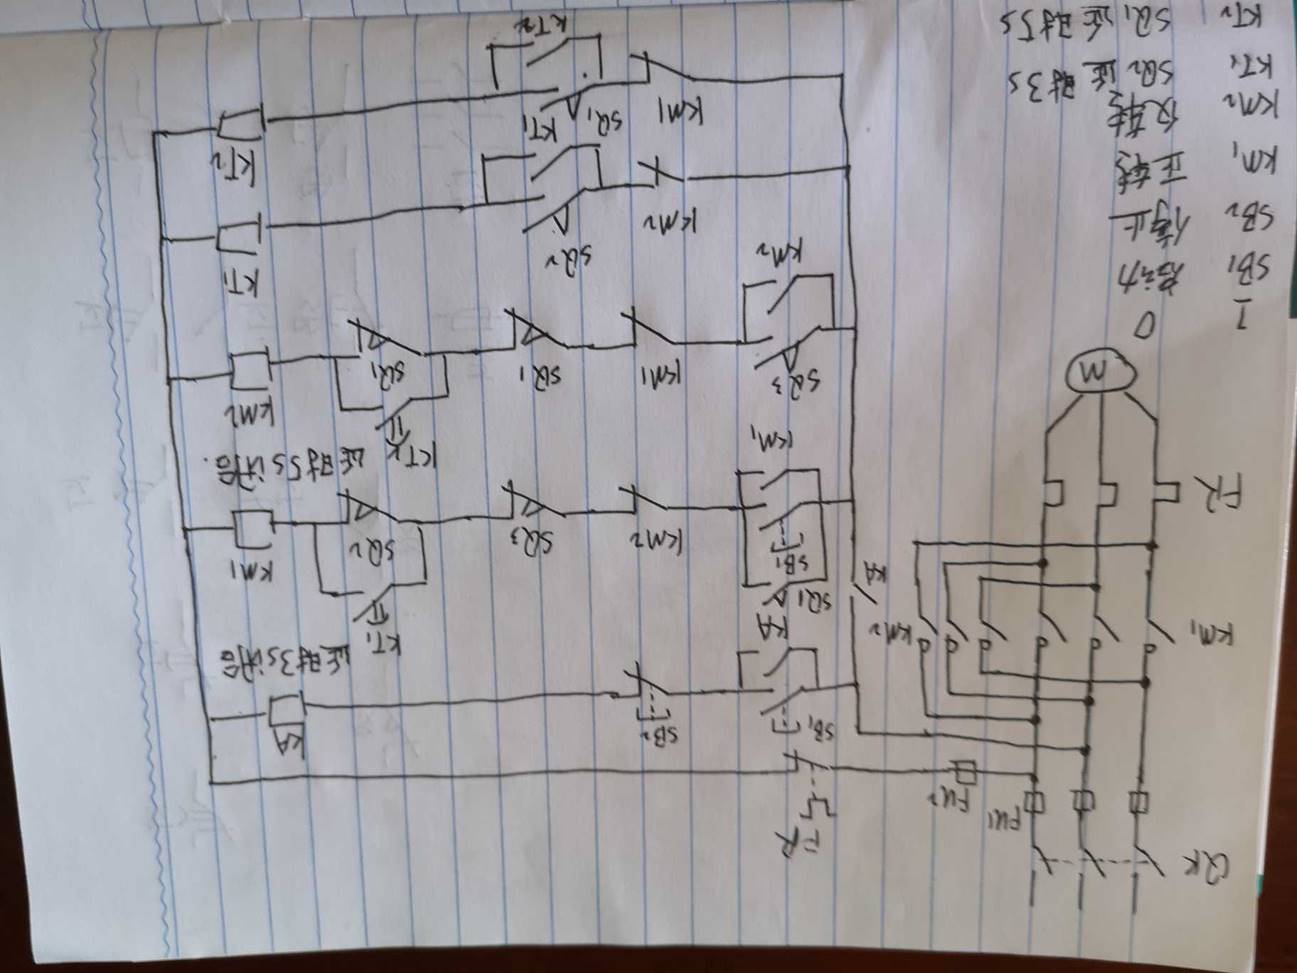 QK
FR
FU1
FU2
SB1
SB2
KA
KA
延时3s闭合
KM1
KM2
KT1
SQ1
KA
SB1
KM2
SQ3
SQ2
KM1
FR
KM1
KT2
延时5s闭合.
SQ3
KM1
SQ1
SQ1
KM2
M
I
O
SB1 起动
SB2 停止
KM1 正转
KM2 反转
KT1 SQ2 延时3s
KT2 SQ1 延时5s
KM2
SQ2
KT1
KM2
KT1
KM1
SQ1
KT2
KT2